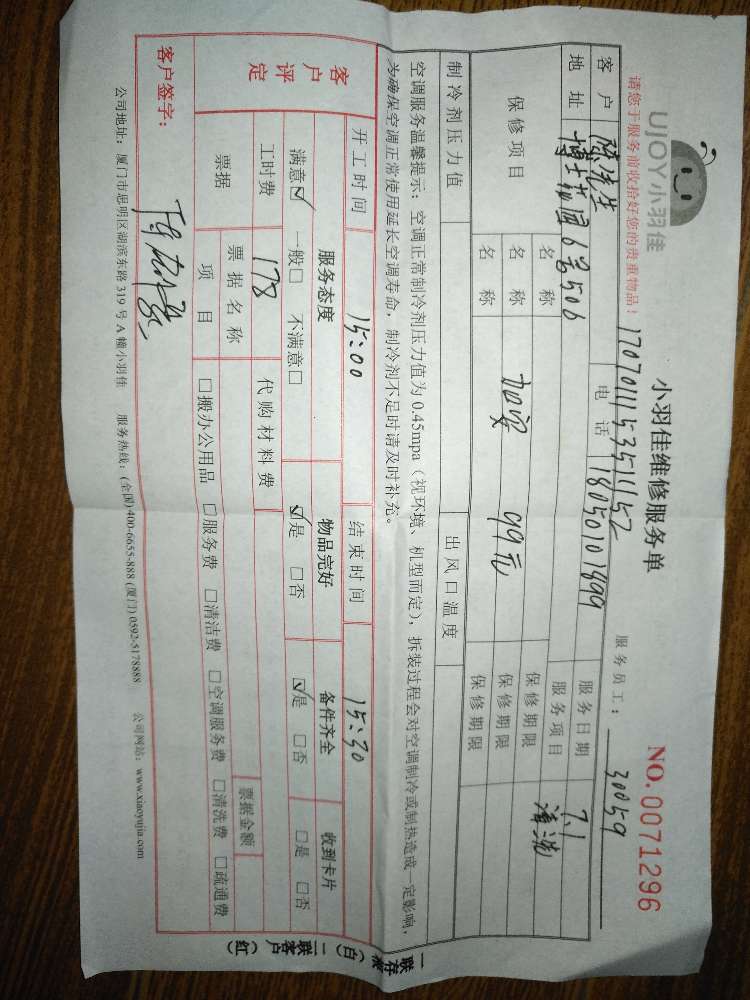 UJOY小羽佳
小羽佳维修服务单
NO. 0071296
请您于服务前收拾好您的贵重物品!
17070111535111152
服务员工: 30059
客户 陈先生 电话 18050101899 服务日期 7.1
地址 博士花园6号506 服务项目 清洗
保修项目 名称 保修期限
名称 加安 99元 保修期限
名称 保修期限
制冷剂压力值 出风口温度
空调服务温馨提示: 空调正常制冷剂压力值为0.45mpa(视环境、机型而定), 拆装过程会对空调制冷或制热造成一定影响,
为确保空调正常使用延长空调寿命, 制冷剂不足时请及时补充。
开工时间 15:00 结束时间 15:30
客户评定 服务态度 物品完好 备件齐全 收到卡片
满意☑ 一般□ 不满意□ ☑是 □否 ☑是 □否 □是 □否
工时费 178 代购材料费
票据 票据名称 票据金额
项目 □搬办公用品 □服务费 □清洁费 □空调服务费 □清洗费 □疏通费
客户签字:
公司地址: 厦门市思明区湖滨东路319号A幢小羽佳 服务热线: (全国)400-6655-888 (厦门) 0592-5178888 公司网站: www.xiaoyujia.com
一联存根(白) 二联客户(红)